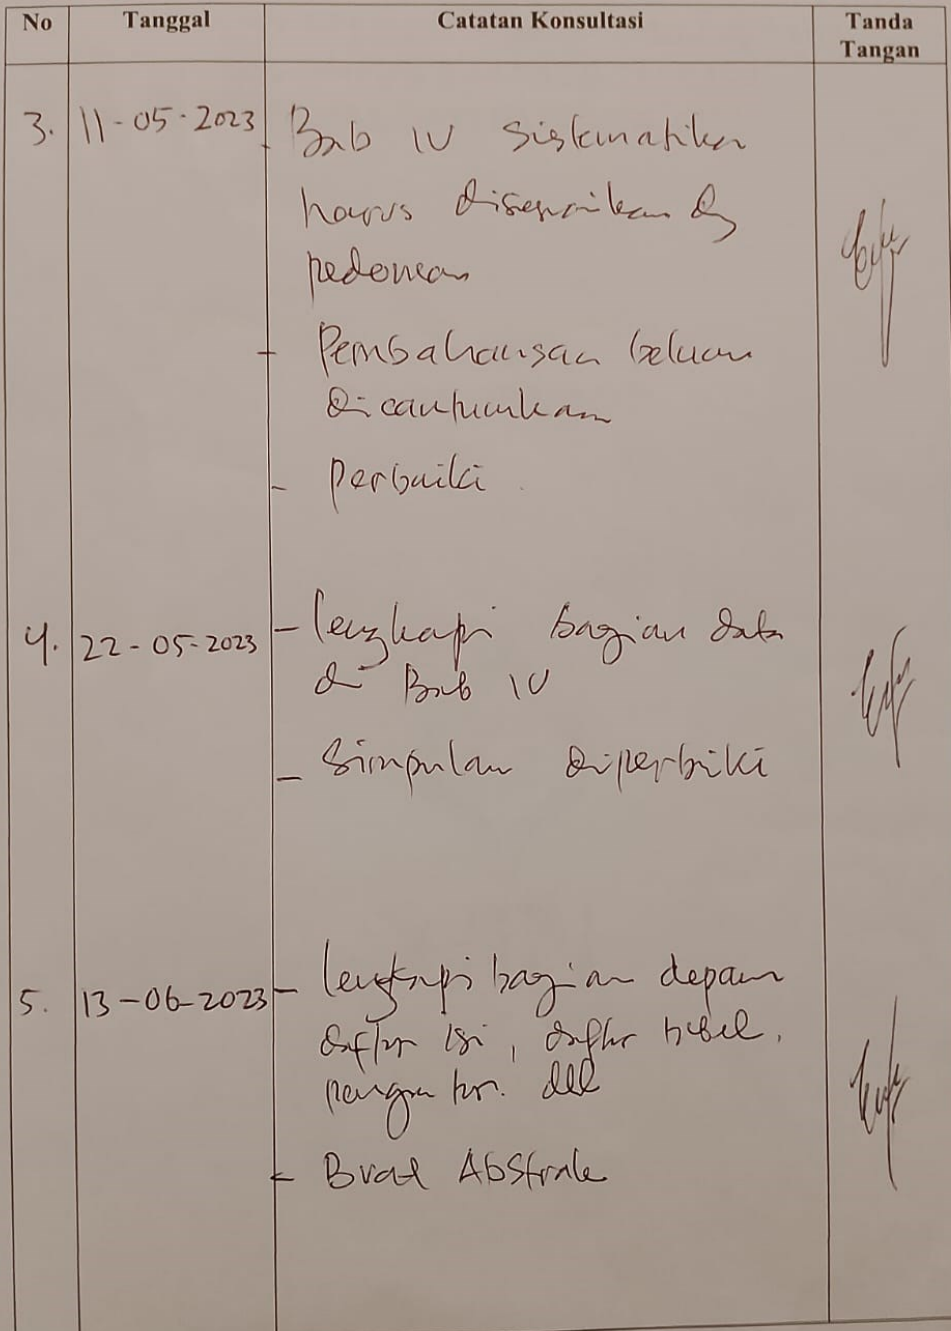 No Tanggal Catatan Konsultasi Tanda Tangan
3. 11-05-2023 - Bab IV Sistematika
harus disesuaikan dg
pedoman
- Pembahasan belum
dicantumkan
- Perbaiki.
4. 22-05-2023 - lengkapi bagian data
di Bab IV
- Simpulan diperbiki
5. 13-06-2023 - lengkapi bagian depan
daftar isi, daftar tabel,
pengantar. dll
- Buat Abstrak